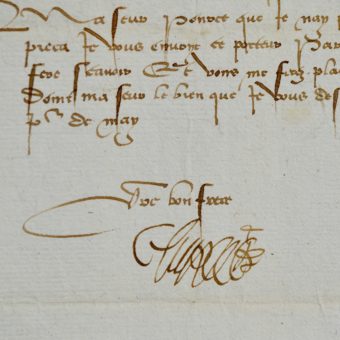 Ma seur pource que je nay p
pieca je vous envoye ce porteur par
fere scavoir Et vous me ferez pla
Donne ma seur le bien que je vous des
de may
Vre bon frere